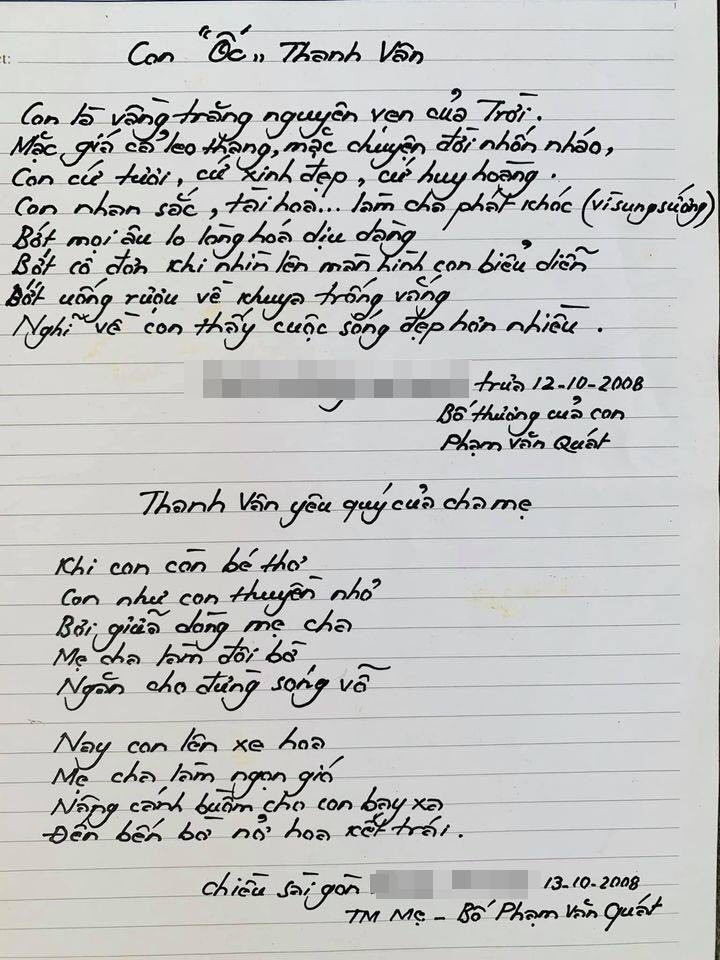 Con "Ốc" Thanh Vân
Con là vầng trăng nguyên vẹn của Trời.
Mặc giá cả leo thang, mặc chuyện đời nhốn nháo,
Con cứ tươi, cứ xinh đẹp, cứ huy hoàng.
Con nhan sắc, tài hoa... làm cha phát khóc (vì sung sướng)
Bớt mọi âu lo lòng hoá dịu dàng
Bớt cô đơn khi nhìn lên màn hình con biểu diễn
Bớt uống rượu về khuya trống vắng
Nghĩ về con thấy cuộc sống đẹp hơn nhiều.
trưa 12-10-2008
Bố thương của con
Phạm Văn Quát
Thanh Vân yêu quý của cha mẹ
Khi con còn bé thơ
Con như con thuyền nhỏ
Bơi giữa dòng mẹ cha
Mẹ cha làm đôi bờ
Ngăn cho đừng sóng vỗ
Nay con lên xe hoa
Mẹ cha làm ngọn gió
Nâng cánh buồm cho con bay xa
Đến bến bờ nở hoa kết trái.
chiều sài gòn 13-10-2008
TM Mẹ - Bố Phạm Văn Quát